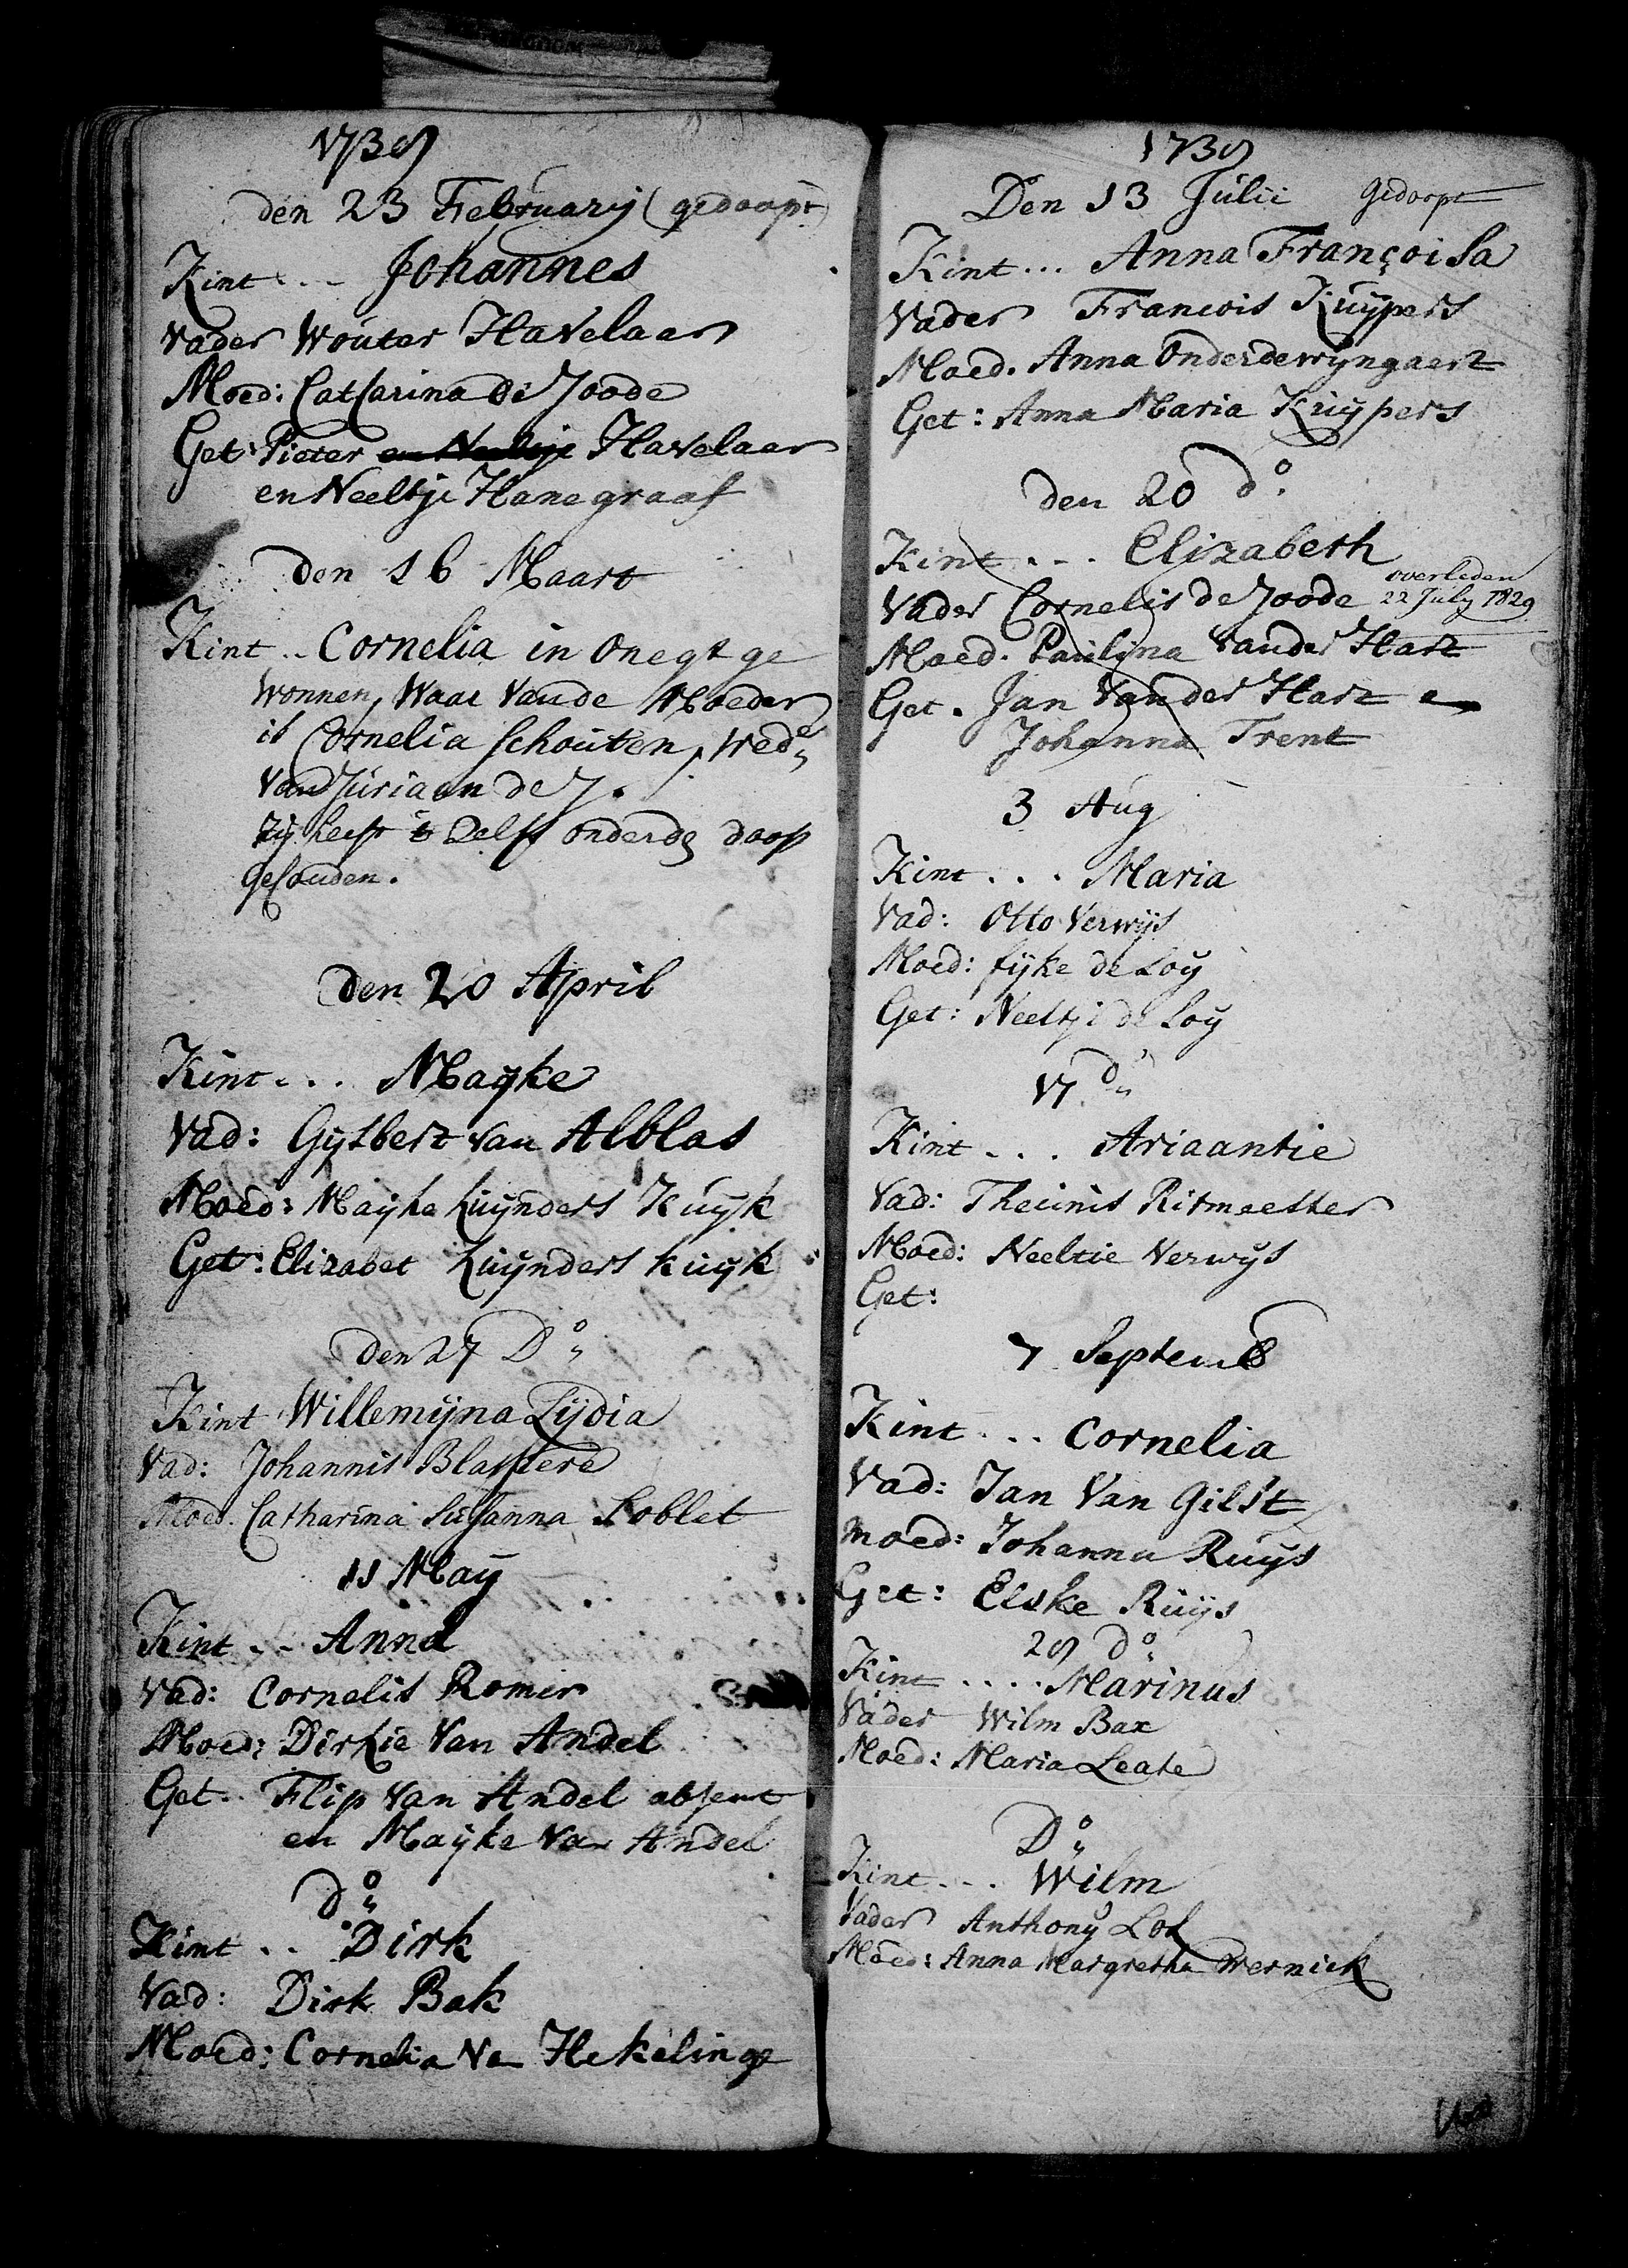 1739
den 23 February (gedoopt)
Kint... Johannes
Vader Wouter Havelaar
Moed: Catharina de Joode
Get: Pieter en Neeltje Havelaar
en Neeltje Hanegraaf
den 16 Maart
Kint.. Cornelia in onegt ge
wonnen, Waar Vande Moeder
is Cornelia Schouten, Wede
Van Juriaan de J.
zij heeft 't zelfs onder dn doop
gehouden.
den 20 April
Kint... Mayke
Vad: Gysbert Van Alblas
Moed: Mayke Luynders Kuyk
Get: Elizabet Luynders kuyk
den 27 Do
Kint Willemyna Lydia
Vad: Johannis Blassiere
Moed. Catharina Susanna Loblet
11 May
Kint.. Anna
Vad: Cornelis Romer
Moed: Dirkie Van Andel
Get.. Flip Van Andel absent
en Mayke Van Andel
do
Kint.. Dirk
Vad: Dirk Bak
Moed: Cornelia Vn Hekelinge
1739
Den 13 Julii Gedoopt
Kint... Anna Françoisa
Vader Francois Kuypers
Moed. Anna Onderdewyngaert
Get: Anna Maria Kuypers
den 20 do.
Kint... Elizabeth
overleden
Vader Cornelis de Joode 22 July 1829
Moed. Paulyna Vander Hart
Get. Jan Vander Hart en
Johanna Trent
3 Aug
Kint... Maria
Vad: Otto Verwijs
Moed: fijke de Loy
Get: Neeltje de Loy
17 do
Kint... Ariaantie
Vad: Theunis Ritmeester
Moed: Neeltie Verwys
Get:
7 Septemb
Kint... Cornelia
Vad: Jan Van Gilst
moed: Johanna Ruys
Get: Elske Ruys
29 do
Kint.... Marinus
Vader Wilm Bax
Moed: Maria Leate
Do
Kint... Wilm
Vader Anthony Lol
Moed: Anna Margretha Wernick